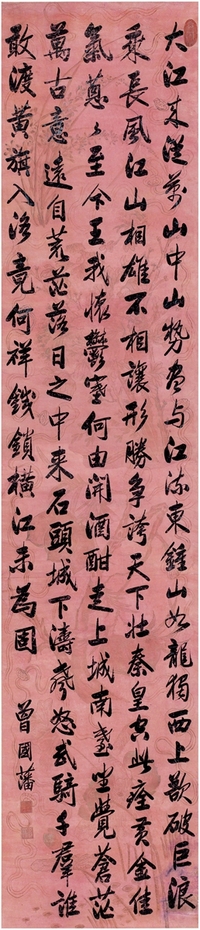 大江来從萬山中山勢盡与江流東鍾山如龍獨西上欲破巨浪
乘長風江山相雄不相讓形勝爭誇天下壯秦皇空此瘞黃金佳
氣蔥々至今王我懷鬱塞何由開酒酣走上城南臺坐覺蒼茫
萬古意遠自荒茫落日之中来石頭城下濤聲怒武騎千羣誰
敢渡黃旗入洛竟何祥鐵鎖橫江未為固 曾國藩